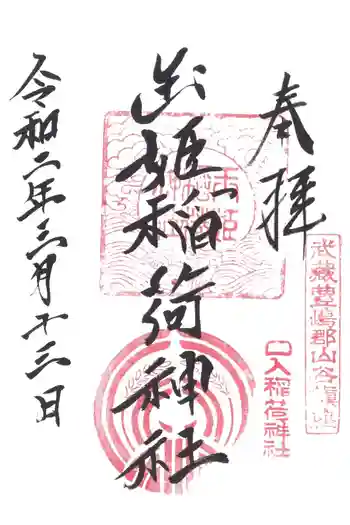 奉拝
武藏豊嶋郡山谷
口入稲荷神社
玉姫稲荷神社
令和二年三月十三日